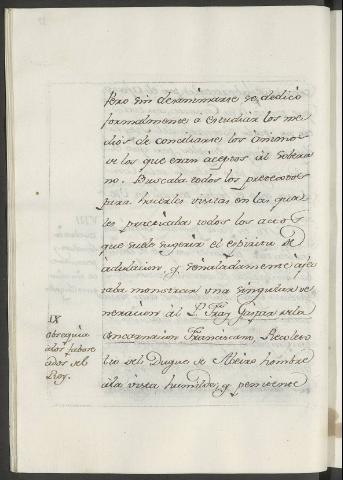 Pero sin desanimarse se dedicó
formalmente á estudiar los me
dios de conciliarse los animos
de los que eran aceptos al Sobera
no. Buscaba todos los pretextos
para hacerles visitas en las qua
les practicaba todos los actos
que sabe sugerir el espiritu de
adulacion y señaladamente afe
taba monstrar una singular ve
neracion al P. Fray Gaspar de la
Encarnacion Franciscano, Recoleto
tio del Duque de Abeiro hombre
á la vista humilde, y penitente
IX
obsequia
a los fabore
cidos del
Rey.